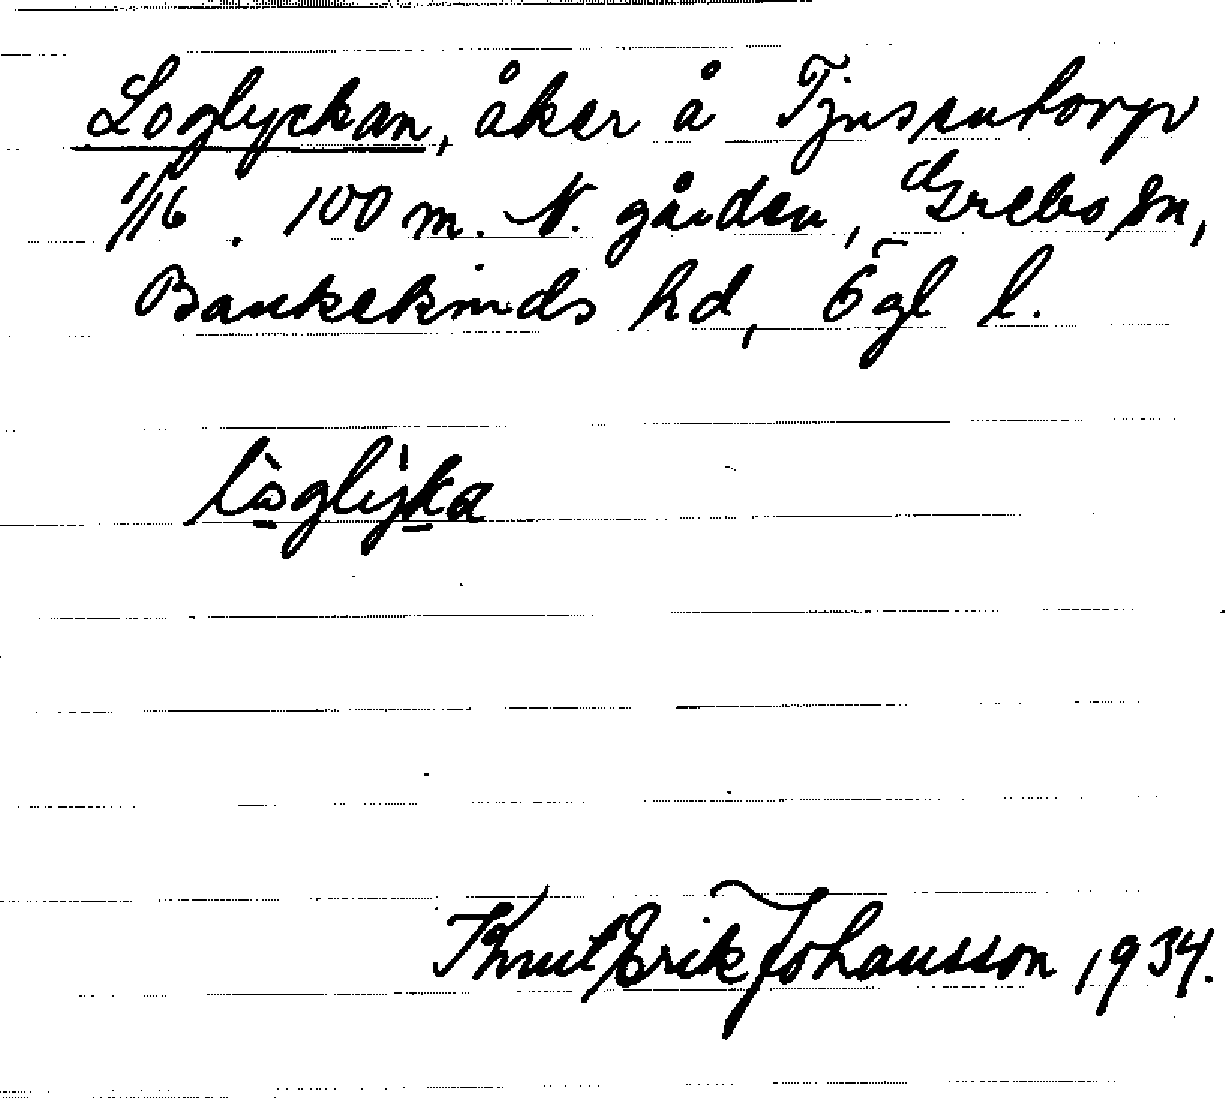 Loglyckan, åker å Tjusentorp
1/16. 100 m. N. gården, Grebo sn,
Bankekinds hd, Ögl l.
Knut Erik Johansson 1934.